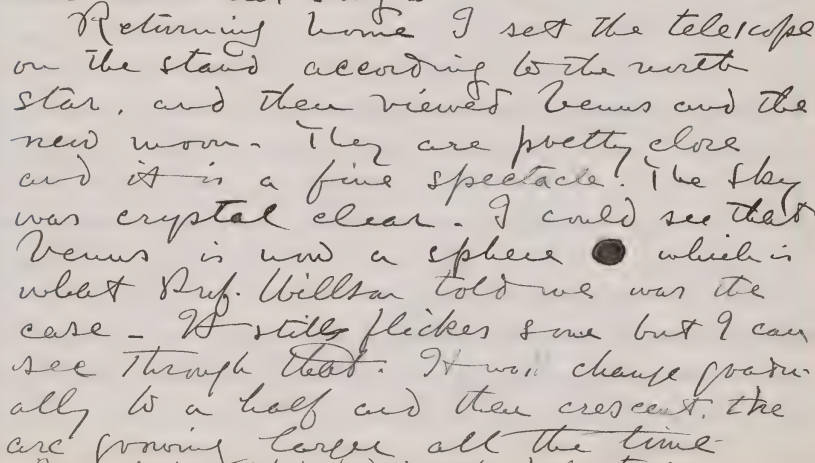 Returning home I set the telescope
on the stand according to the north
star, and then viewed Venus and the
new moon. They are pretty close
and it is a fine spectacle. The sky
was crystal clear. I could see that
Venus is now a sphere which is
what Prof. Willson told me was the
case - It still flickes some but I can
see through that. It will change gradu-
ally to a half and then crescent, the
arc growing larger all the time